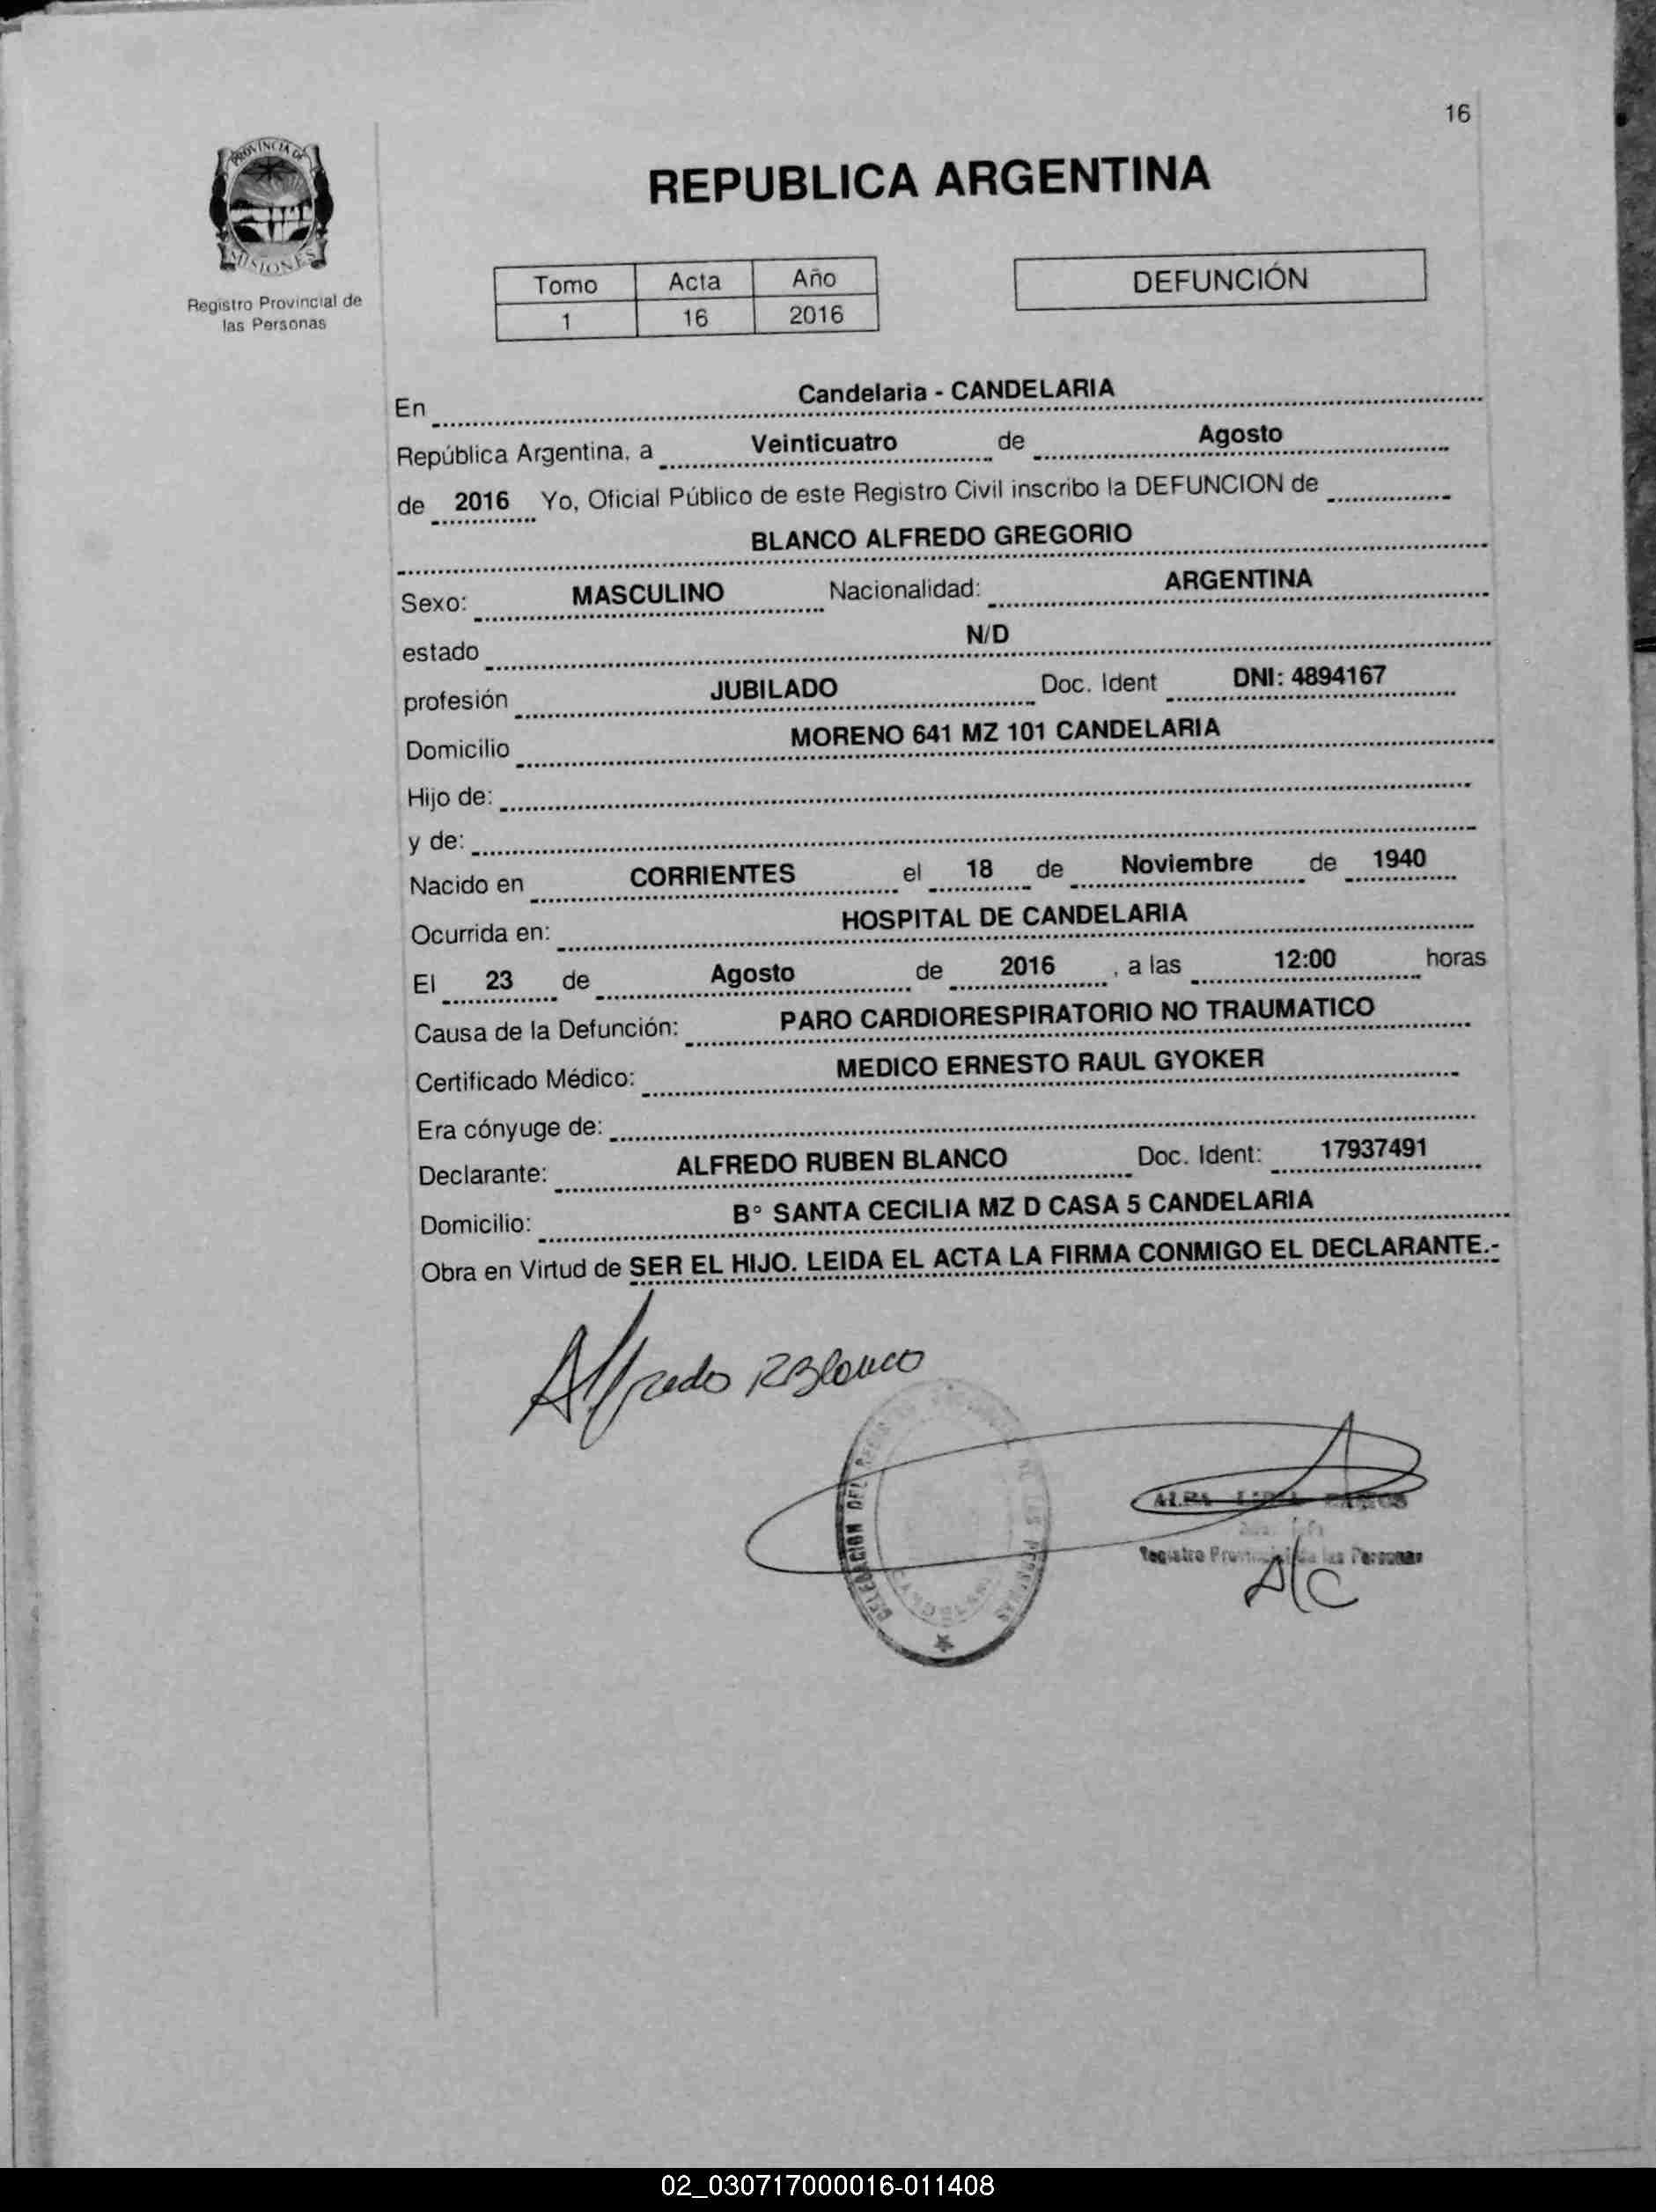 16
PROVINCIA DE
MISIONES
Registro Provincial de
las Personas
REPUBLICA ARGENTINA
Tomo Acta Año
1 16 2016
DEFUNCIÓN
En Candelaria - CANDELARIA
República Argentina, a Veinticuatro de Agosto
de 2016 Yo, Oficial Público de este Registro Civil inscribo la DEFUNCION de
BLANCO ALFREDO GREGORIO
Sexo: MASCULINO Nacionalidad: ARGENTINA
estado N/D
profesión JUBILADO Doc. Ident DNI: 4894167
Domicilio MORENO 641 MZ 101 CANDELARIA
Hijo de:
y de:
Nacido en CORRIENTES el 18 de Noviembre de 1940
Ocurrida en: HOSPITAL DE CANDELARIA
El 23 de Agosto de 2016 , a las 12:00 horas
Causa de la Defunción: PARO CARDIORESPIRATORIO NO TRAUMATICO
Certificado Médico: MEDICO ERNESTO RAUL GYOKER
Era cónyuge de:
Declarante: ALFREDO RUBEN BLANCO Doc. Ident: 17937491
Domicilio: B° SANTA CECILIA MZ D CASA 5 CANDELARIA
Obra en Virtud de SER EL HIJO. LEIDA EL ACTA LA FIRMA CONMIGO EL DECLARANTE.-
Alfredo R Blanco
DELEGACION DEL
Registro Provincial de las Personas
A/C
02_030717000016-011408